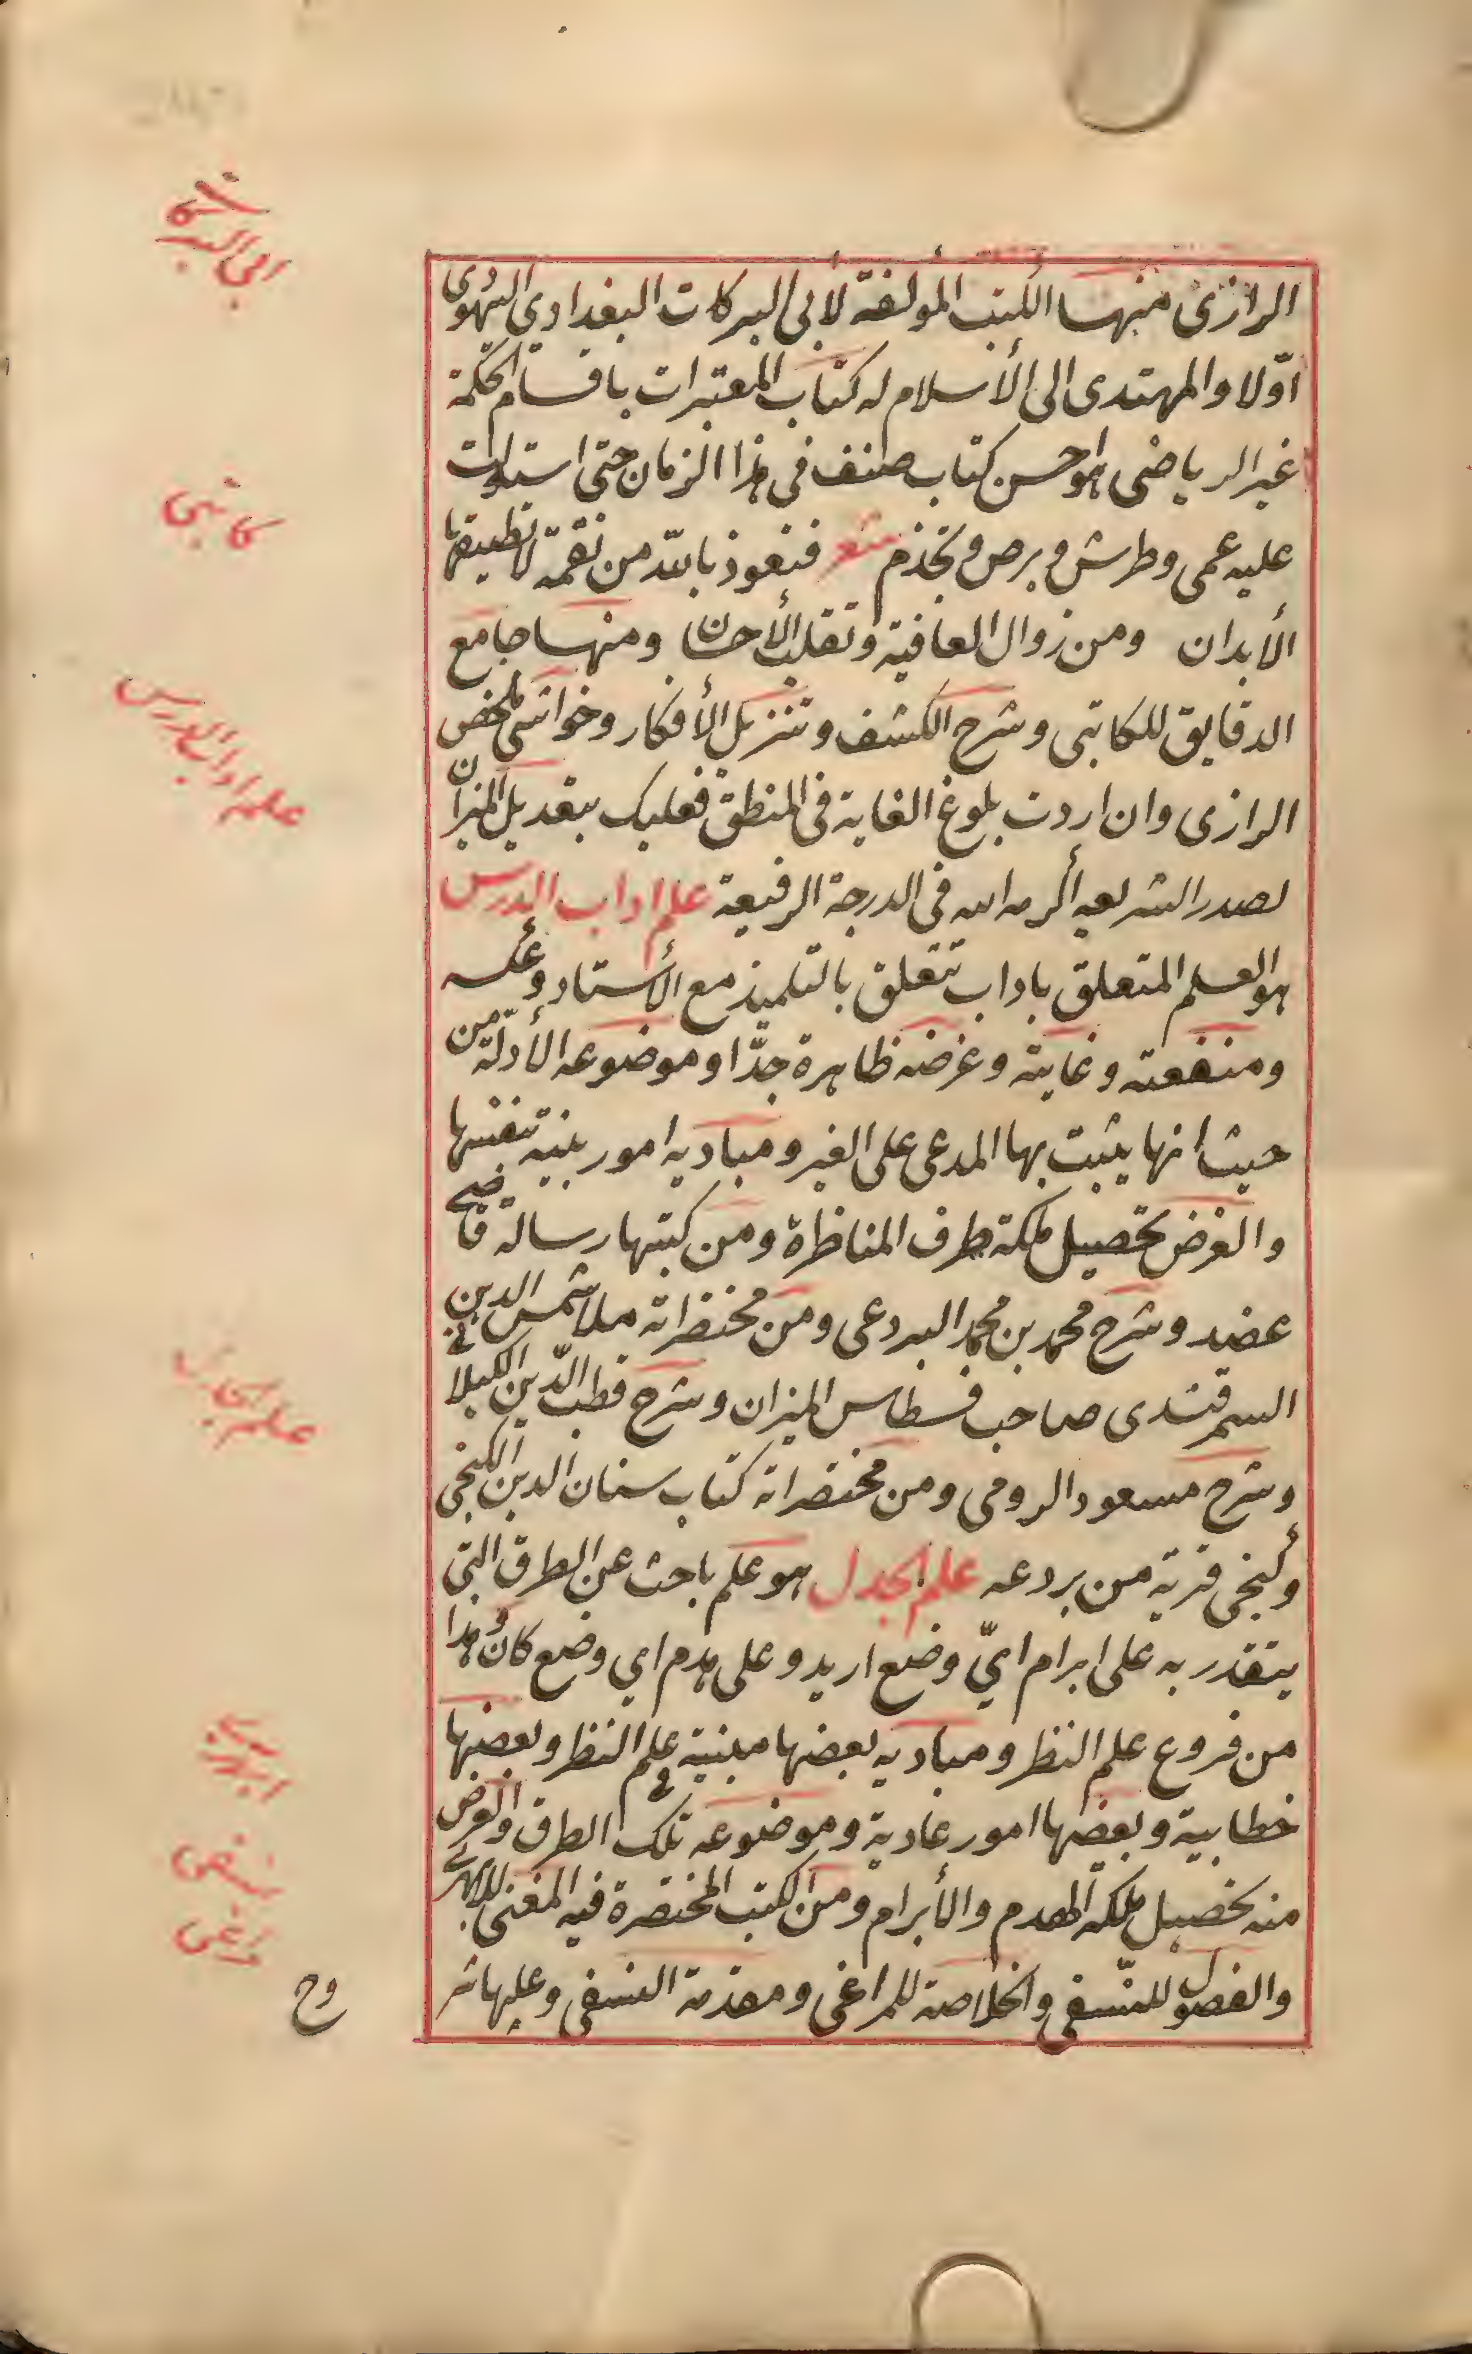 الرازى منها الكتب المولفة لابى البركات البغدادي اليهودى
اوّلا والمهتدى الى الأسلام له كتاب المعتبرات باقسام الحكمة
غير الرياضى هو احسن كتاب صنف فى هذا الزمان حتى استولت
عليه عمى وطرش وبرص وتجذم فنعوذ بالله من نقمة لا تطيقها
الأبدان ومن زوال العافية وتقلب الأحسان ومنها جامع
الدقايق للكاتبى وشرح الكشف وتنزيل الأفكار وحواشى ملخص
الرازى وان اردت بلوغ الغاية فى المنطق فعليك بتعديل الميزان
لصدر الشريعه أكرمه الله فى الدرجة الرفيعة علم اداب الدرس
هو العلم المتعلق باداب تتعلق بالتلميذ مع الأستاد وعكسه
ومنفعته وغايته وغرضه ظاهرة جدّا وموضوعه الأدلّة من
حيث انها يثبت بها المدعى على الغير ومباديه امور بينة بنفسها
والغرض تحصيل ملكة طرف المناظرة ومن كتبها رسالة قاضى
عضد وشرح محمد بن محمد البردعى ومن مختصراته ملا شمس الدين
السمرقندى صاحب قسطاس الميزان وشرح قطب الدّين الكيلانى
وشرح مسعود الرومى ومن مختصراته كتاب سنان الدين الكنجى
وكنجى قرية من بردعه علم الجدل هو علم باحث عن الطرق التى
يتقدر به على ابرام ايّ وضع اريد وعلى هدم اي وضع كان وهذا
من فروع علم النظر ومباديه بعضها مبنية فى علم النظر وبعضها
خطابية وبعضها امور عادية وموضوعه تلك الطرق والغرض
منه تحصيل ملكة الهدم والأبرام ومن الكتب المختصرة فيه المغنى للابهرى
والفصول للنّسفى والخلاصة للمراغى ومقدمة النسفى وعليها شر
وح
ابى البركات
كاتبى
علم اداب الدرس
نسفى
مراغى